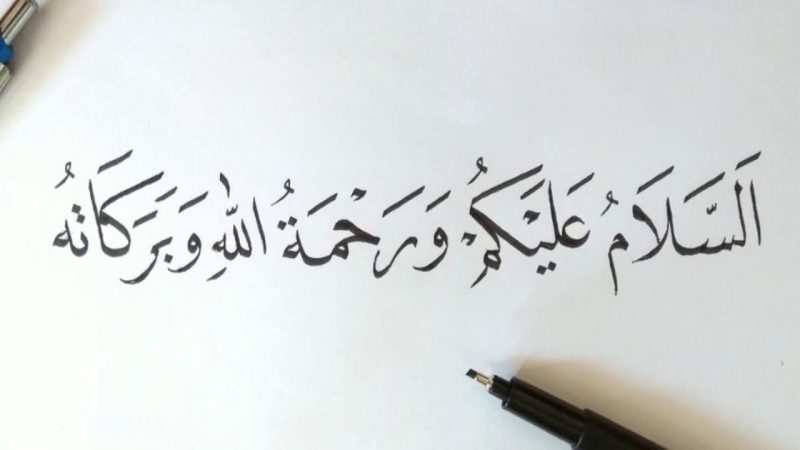 اَلسَّلَامُ عَلَيْكُمْ وَرَحْمَةُ اللّٰهِ وَبَرَكَاتُهُ